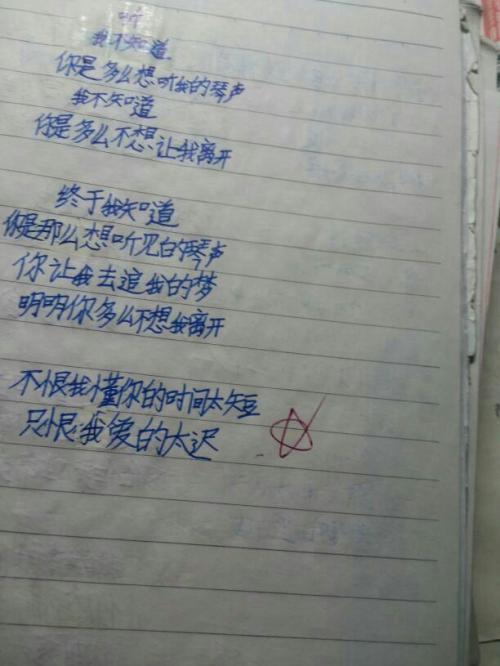 听
我不知道
你是多么想听我的琴声
我不知道
你是多么不想让我离开
终于我知道
你是那么想听见的琴声
你让我去追我的梦
明明你多么不想我离开
不恨我懂你的时间太短
只恨我爱的太迟